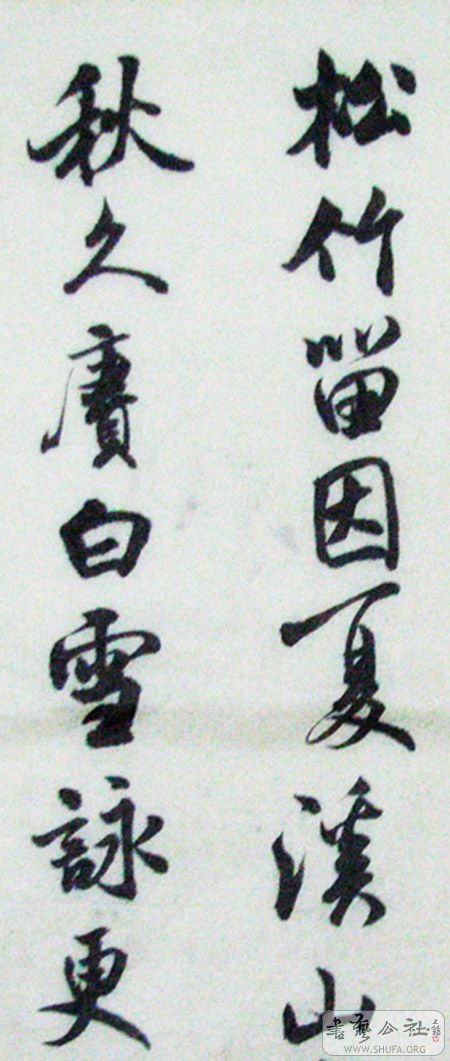 松竹留因夏溪山
秋久賡白雪詠更
書藝公社
WWW.SHUFA.ORG